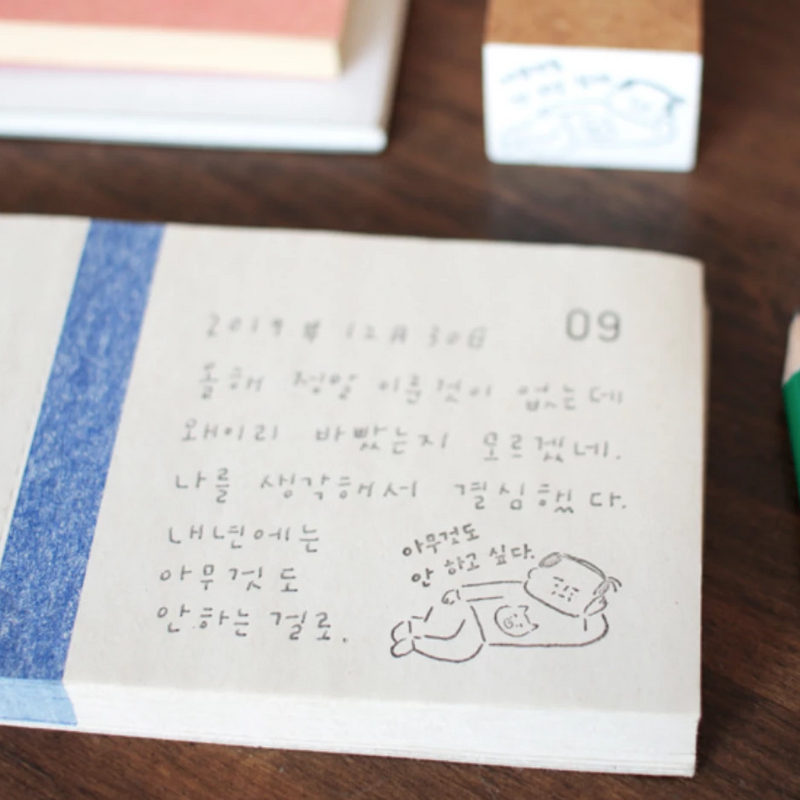 09
2019年 12月 30日
올해 정말 이룬것이 없는데
왜이리 바빴는지 모르겠네.
나를 생각해서 결심했다.
내년에는
아무것도
안하는 걸로.
아무것도
안 하고 싶다.